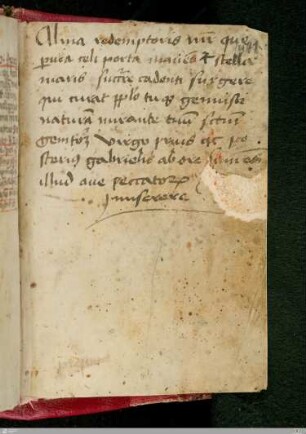 Alma redemptoris mr̄ que
puia celi porta manes & stella
maris succ̄re cadenti surgere
qui curat pplo tu q̄ genuisti
naturā mirante tuū sctm̄
genitoꝝ Virgo prius ac po
sterius gabrielis ab ore sumēs
illud aue peccatoꝝ
miserere